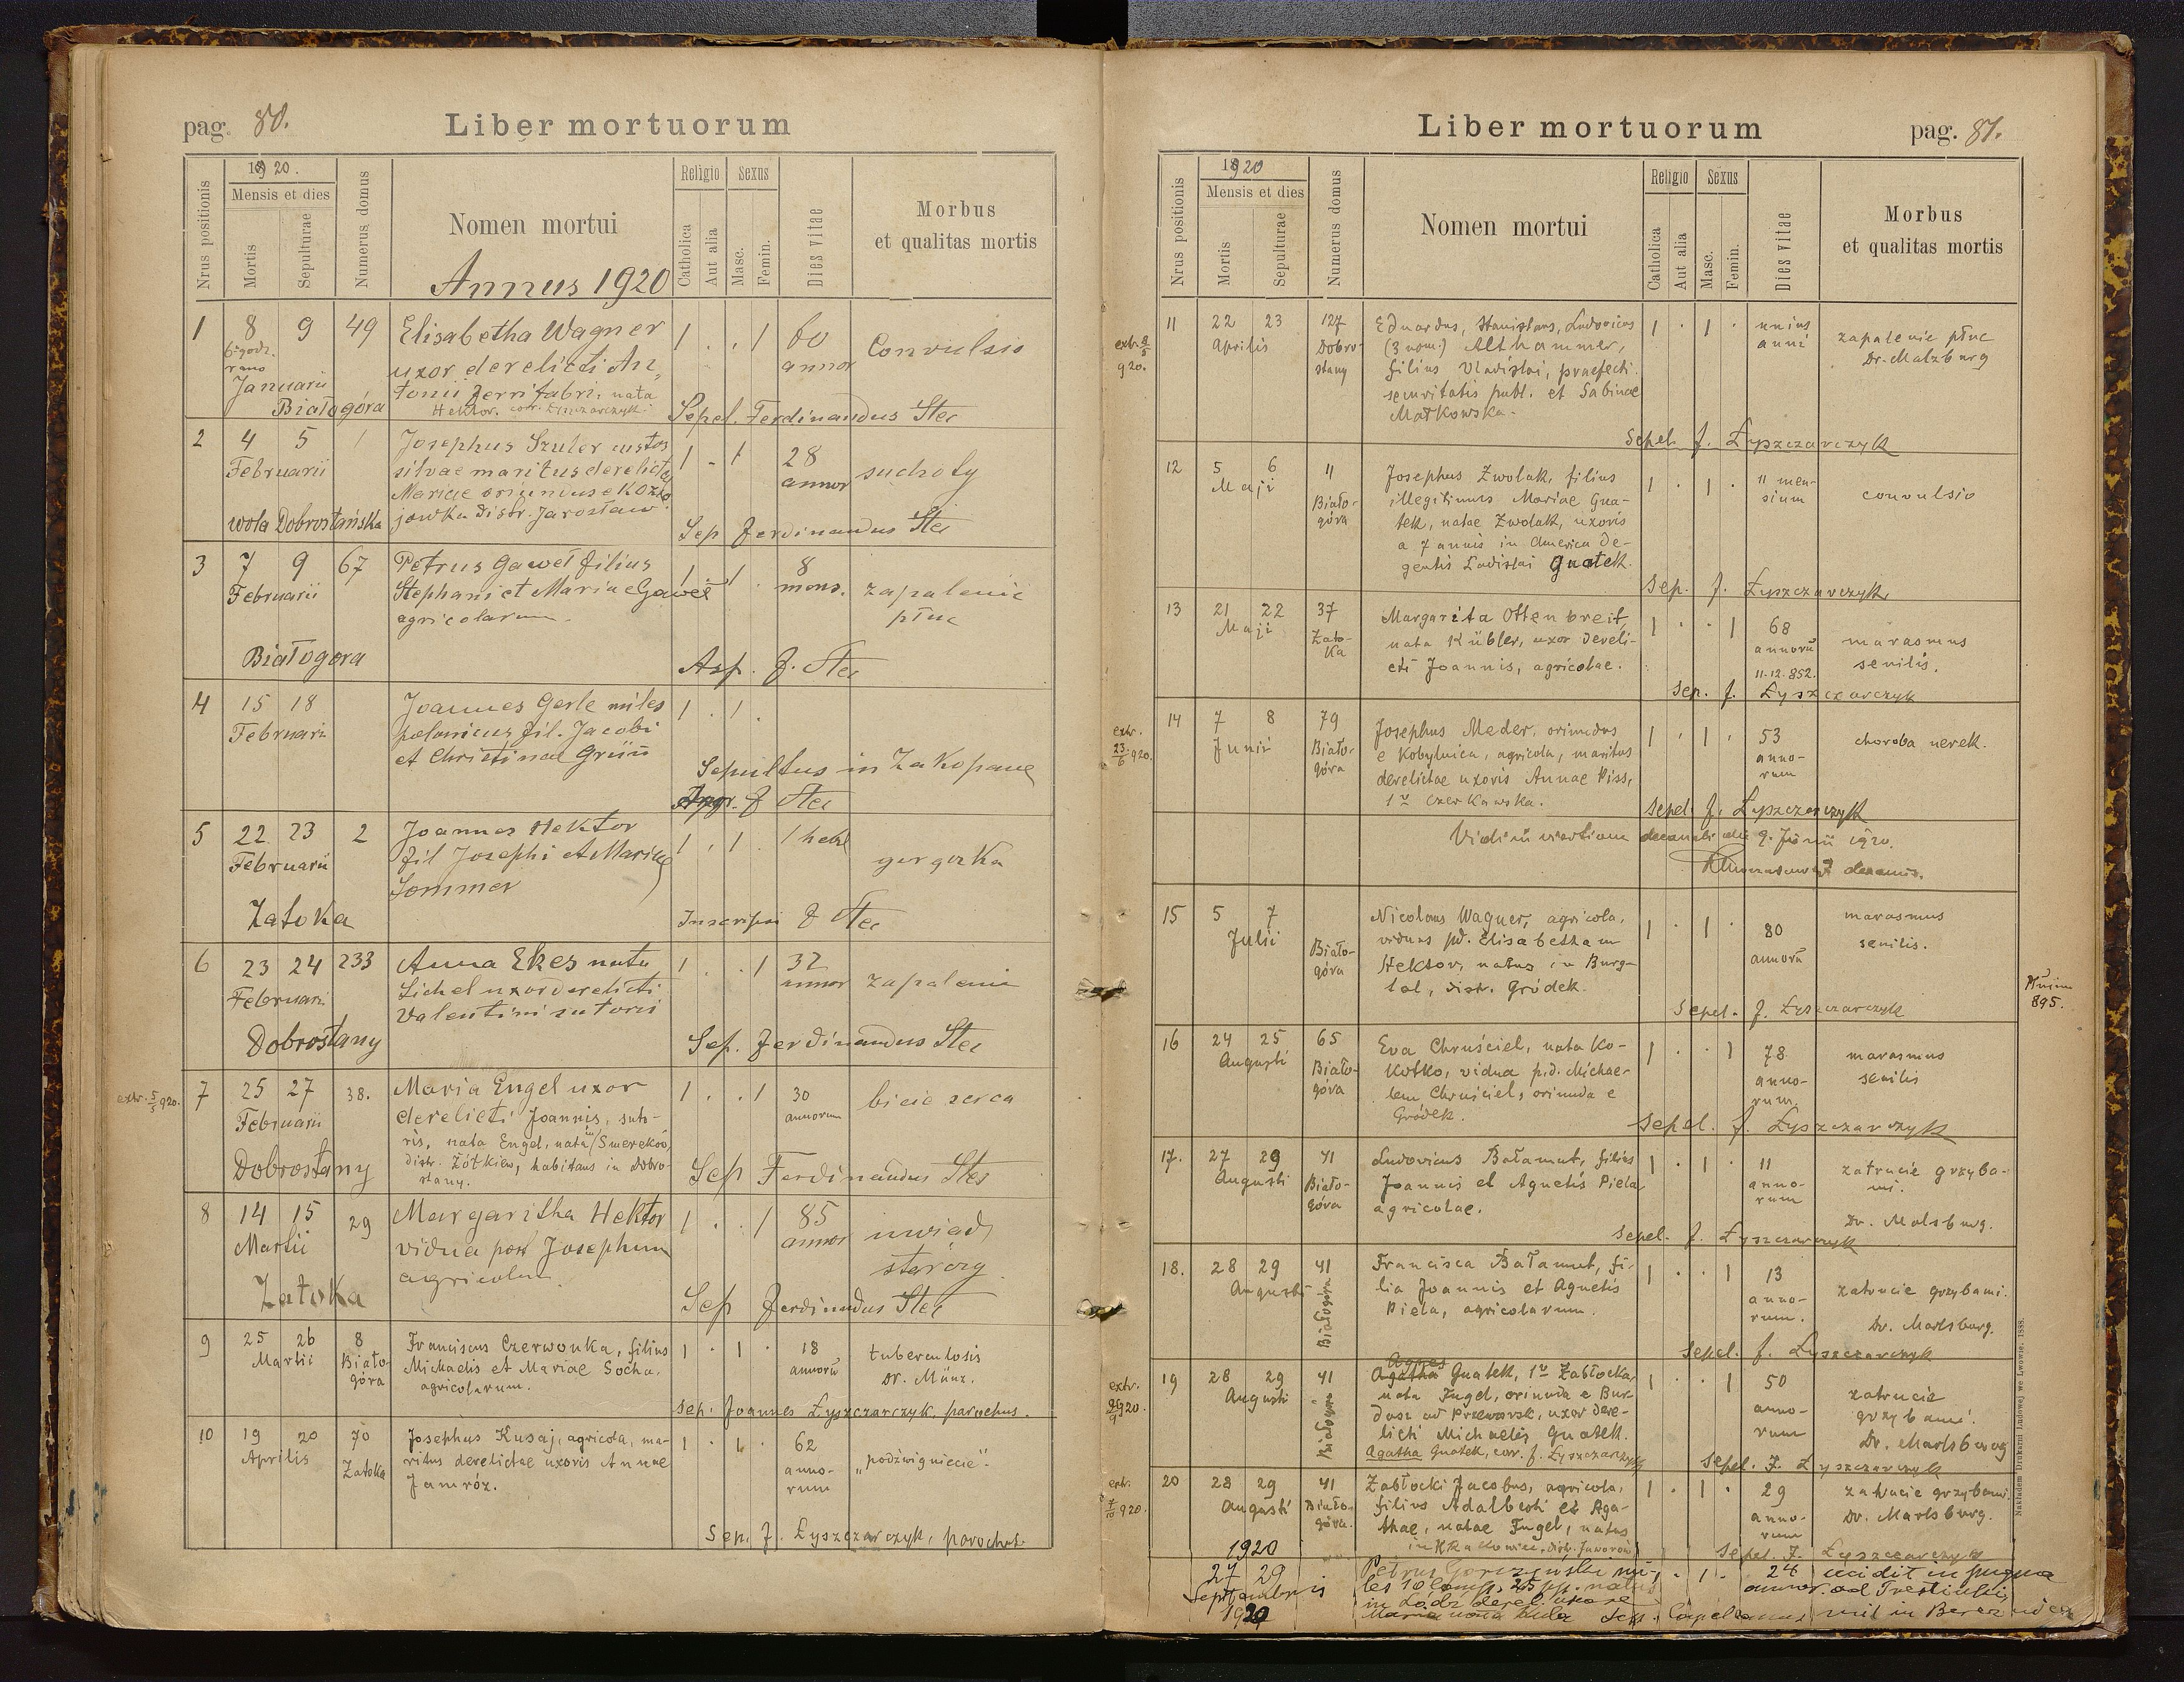 pag. 80.
Liber mortuorum
Nrus positionis
1920.
Mensis et dies
Mortis
Sepulturae
Numerus domus
Nomen mortui
Annus 1920
Religio
Catholica
Aut alia
Sexus
Masc.
Femin.
Dies vitae
Morbus
et qualitas mortis
1 8 9 49 Elisabetha Wagner 1 . . 1 60 Convulsio
6 godz. rano uxor derelicti An- annor
Januarii tonii ferri fabri, nata
Białogóra Hektor. corr. Łyszczarczyk. Sepel. Ferdinandus Stec
2 4 5 1 Josephus Szuler custos 1 - 1 28 suchoty
Februarii silvae maritus derelictae annor
Mariae oriundus e Kozio
wola Dobrostańska jowka distr. Jarosław. Sep Ferdinandus Stec
3 7 9 67 Petrus Gaweł filius 1 . 1 . 8 zapalenie
Februarii Stephani et Mariae Gaweł mens. płuc
agricolarum.
Białogora f. Stec
4 15 18 Joannes Gerle miles 1 . 1 .
Februari polonicus fil. Jacobi
et Christinae Grün Sepultus in Zakopane
f Stec
5 22 23 2 Joannes Hektor 1 . 1 . 1
Februarii fil Josephi et Mariae
Sommer
Zatoka f Stec
6 23 24 233 Anna Ekes nata 1 . . 1 32 zapalenie
Februari uxor derelicti annor
Valentini sutoris
Dobrostany Sep. Ferdinandus Stec
extr. 5/5 920. 7 25 27 38. Maria Engel uxor 1 . . 1 30 bicie serca
Februarii derelicti Joannis, suto- annorum
ris, nata Engel, nata in Smereków,
Dobrostany distr. Żółkiew, habitans in Dobro-
stany. Sep Ferdinandus Stec
8 14 15 29 Margaritha Hektor 1 . . 1 85 uwiąd
Martii vidua post Josephum annor
agricolam.
Zatoka Sep Ferdinandus Stec
9 25 26 8 Franciscus Czerwonka, filius 1 . 1 . 18 tuberculosis
Martii Biało- Michaelis et Mariae Socha, annorū Dr. Münz.
góra agricolarum.
Sep. Joannes Łyszczarczyk, parochus.
10 19 20 70 Josephus Kusaj, agricola, ma- 1 . 1 . 62 „podźwignięcie".
Aprilis Zatoka ritus derelictae uxoris Annae anno-
Jamróz. rum
Sep. J. Łyszczarczyk, paroch.
Liber mortuorum
pag. 81.
Nrus positionis
1920
Mensis et dies
Mortis
Sepulturae
Numerus domus
Nomen mortui
Religio
Catholica
Aut alia
Sexus
Masc.
Femin.
Dies vitae
Morbus
et qualitas mortis
11 22 23 127 Eduardus, Stanislaus, Ludovicus 1 . 1 . unius zapalenie płuc
extr. 920. Aprilis Dobro- (3 nom.) Althammer, anni Dr. Malzburg
stany filius Vladislai, praefecti
securitatis publ. et Sabinae
Małkowska.
Sepel. J. Łyszczarczyk
12 5 6 11 Josephus Zwolak, filius 1 . 1 . 11 men- convulsio
Maji Biało- illegitimus Mariae Gua- sium
góra tek, natae Zwolak, uxoris
a 7 annis in America de-
gentis Ladislai Guatek.
Sep. J. Łyszczarczyk
13 21 22 37 Margarita Ottenbreit, 1 . . 1 68 marasmus
Maji Zato- nata Kübler, uxor dereli- annorū senilis.
ka cti Joannis, agricolae. 11.12.852.
Sep. J. Łyszczarczyk
extr. 23/6 920. 14 7 8 79 Josephus Meder, oriundus 1 . 1 . 53 choroba nerek.
Junii Biało- e Kobylnica, agricola, maritus anno-
góra derelictae uxoris Annae Piss, rum
1v Czerkawska.
Sepel. J. Łyszczarczyk
decanali die 9. Junii 1920.
decanus.
15 5 7 Nicolaus Wagner, agricola, 1 . 1 . 80 marasmus
Julii Biało- viduus p. Elisabetham annorū senilis.
góra Hektor, natus in Burg-
tal, distr. Gródek.
Sepel. J. Łyszczarczyk
895.
16 24 25 65 Eva Chruściel, nata Ko- 1 . . 1 78 marasmus
Augusti Biało- kotko, vidua p.d. Michae- anno- senilis
góra lem Chruściel, oriunda e rum.
Gródek.
Sepel. J. Łyszczarczyk
17. 27 29 41 Ludovicus Bałamut, filius 1 . 1 . 11 zatrucie grzyba-
Augusti Biało- Joannis et Agnetis Piela, anno- mi.
góra agricolae. rum
Dr. Malsburg.
Sepel. J. Łyszczarczyk
18. 28 29 41 Francisca Bałamut, fi- 1 . . 1 13 zatrucie grzybami.
Augusti Białogóra lia Joannis et Agnetis anno-
Piela, agricolarum. rum. Dr. Marlsburg.
Sepel. J. Łyszczarczyk
Agnes
extr. 26/9 920. 19 28 29 41 Agatha Guatek, 1v Zabłocka, 1 . . 1 50 zatrucie
Augusti Białogóra nata Fugel, oriunda e Bur- anno- grzybami.
dasz ad Przeworsk, uxor dere- rum Dr. Marlsburg
licti Michaelis Guatek.
Agatha Guatek, corr. J. Łyszczarczyk
Sepel. J. Łyszczarczyk
extr. 7/10 920. 20 28 29 41 Zabłocki Jacobus, agricola, 1 . 1 . 29 zatrucie grzybami.
Augusti Biało- filius Adalberti et Aga- anno- Dr. Marlsburg.
góra. thae, natae Fugel, natus rum
distr. Jaworów
Sepel. J. Łyszczarczyk
1920
27 29 Petrus mi- . 1 . 24 cecidit in pugna
Septembris les 10 comp. natus annor. ad
1920 in Łódz derel. uxore
Maria Sep. Capellanus mil in
Nakładem Drukarni Ludowej we Lwowie, 1888.